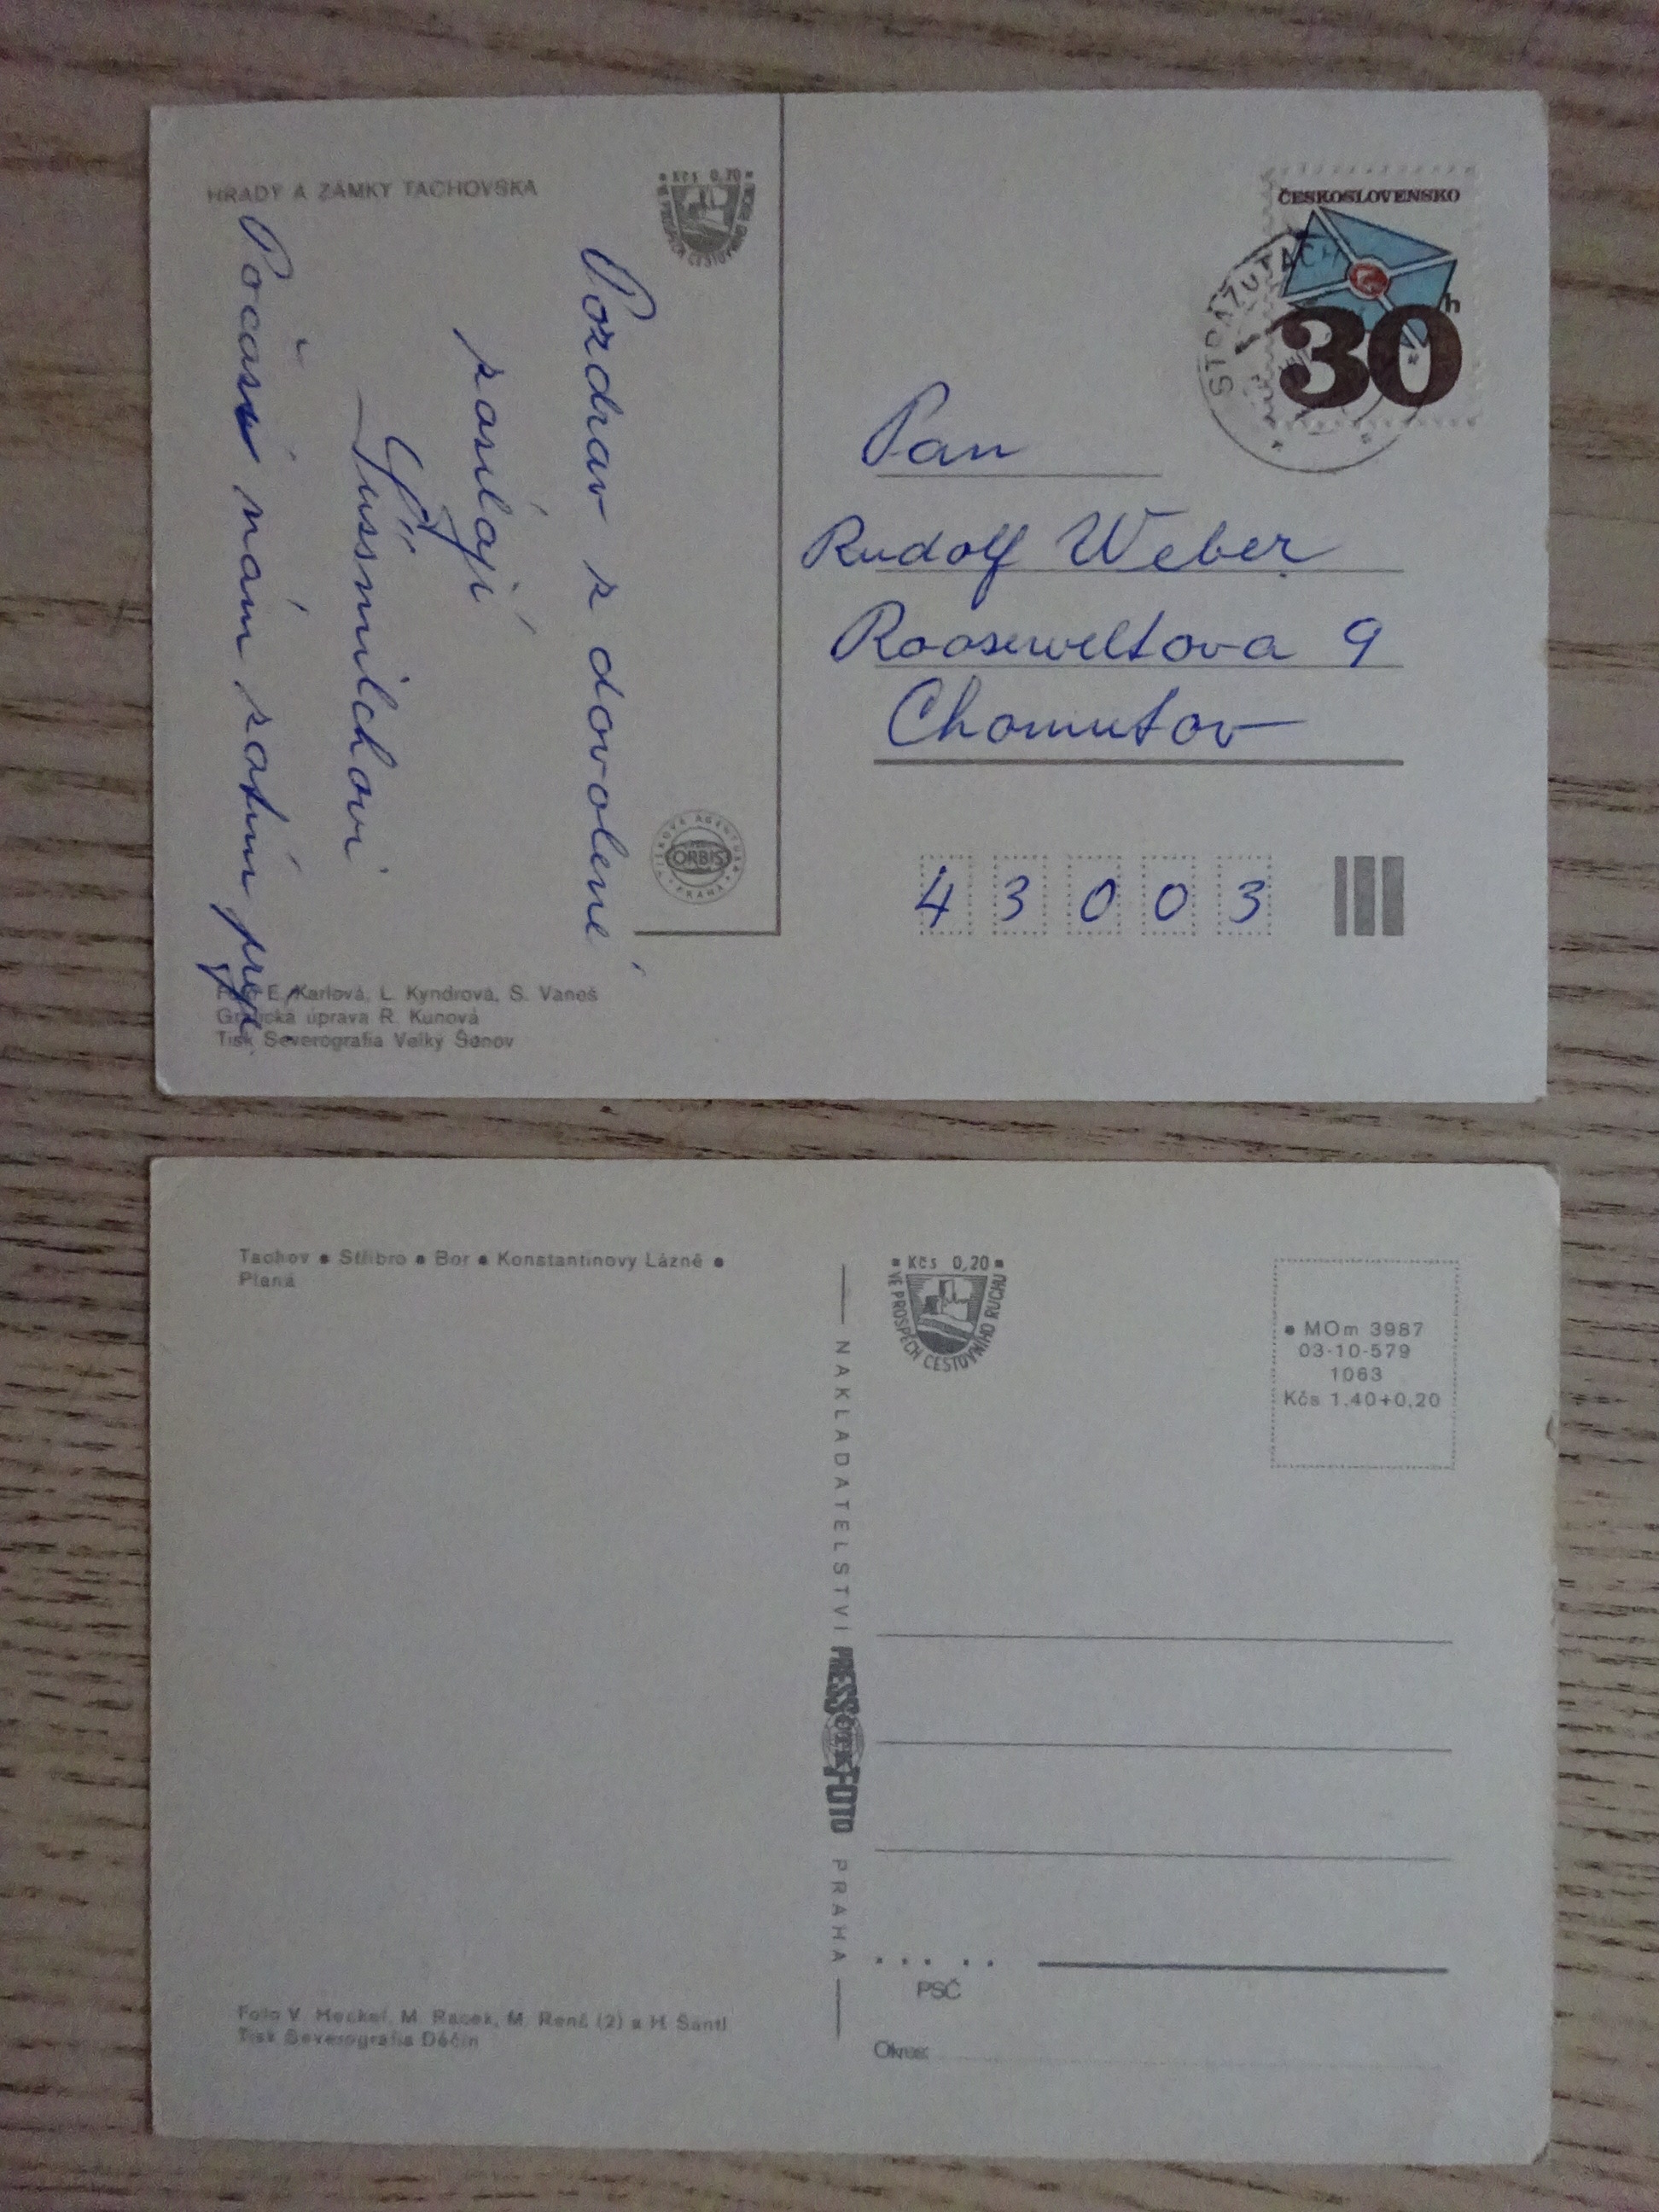 HRADY A ZÁMKY TACHOVSKA
Kčs 0,20
VE PROSPĚCH CESTOVNÍHO RUCHU
Pozdrav z dovolené
zasílají
Süssmilchovi
Počasí nám zatím přeje.
TISKOVÁ AGENTURA
ORBIS
PRAHA
Foto E. Karlová, L. Kyndrová, S. Vaneš
Grafická úprava R. Kunová
Tisk Severografia Velký Šenov
ČESKOSLOVENSKO
h
30
STRÁŽ U TACH
Pan
Rudolf Weber
Rooseweltova 9
Chomutov
4 3 0 0 3
Tachov • Stříbro • Bor • Konstantinovy Lázně •
Planá
Foto V. Heckel, M. Racek, M. Renč (2) a H. Šantl
Tisk Severografia Děčín
NAKLADATELSTVÍ PRESSFOTO PRAHA
Kčs 0,20
VE PROSPĚCH CESTOVNÍHO RUCHU
• MOm 3987
03-10-579
1063
Kčs 1,40+0,20
PSČ
Okres